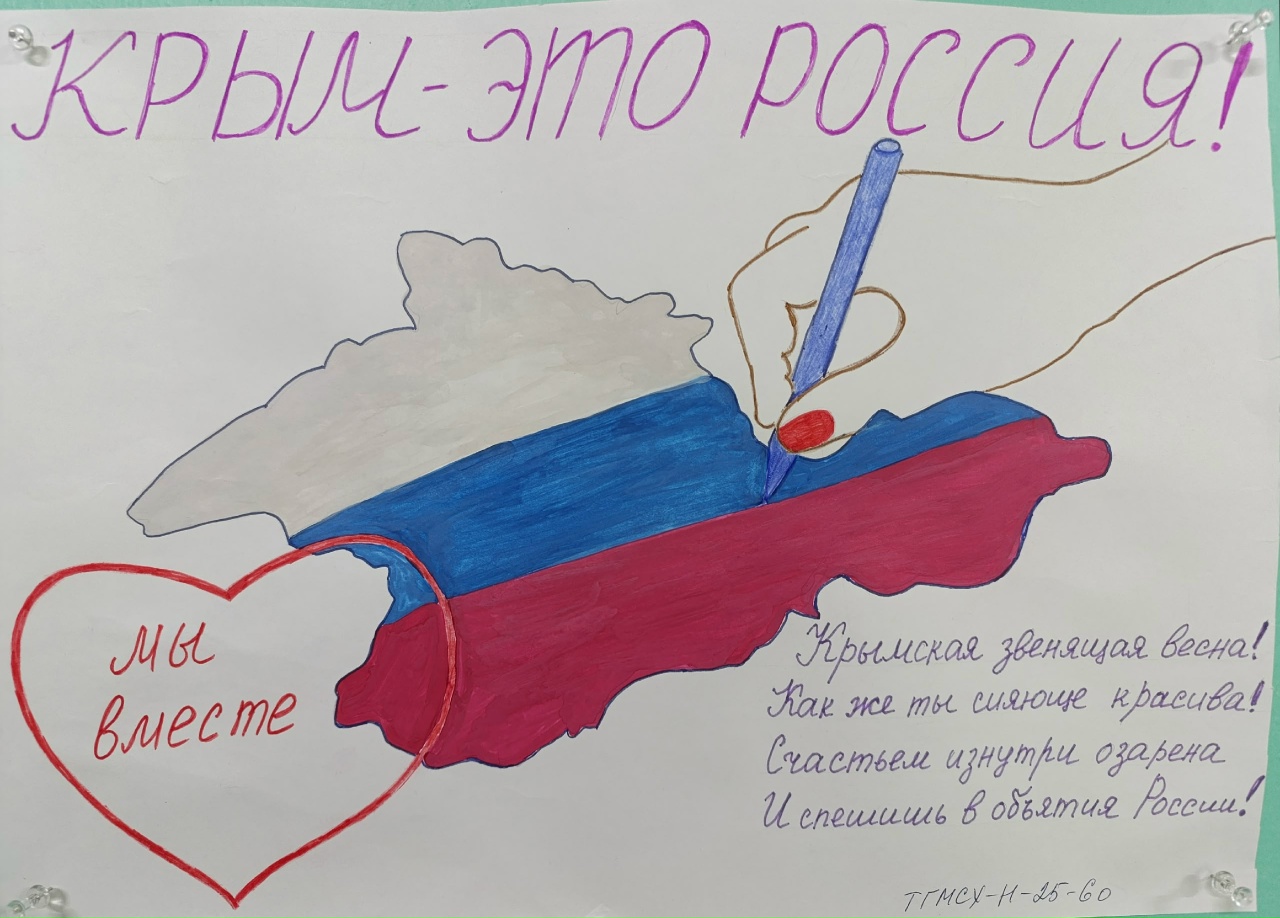 КРЫМ-ЭТО РОССИЯ!
мы
вместе
Крымская звенящая весна!
Как же ты сияюще красива!
Счастьем изнутри озарена
И спешишь в объятия России!
ТГМСХ-Н-25-60